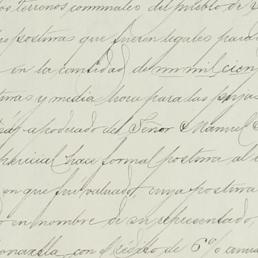 os terrenos comunales del pueblo de
posturas que fueren legales para
en la cantidad de un mil cien
y media hora para las pujas
apoderado del Señor Manuel
pericial hace formal postura al
en que fué valuado, cuya postura
o en nombre de su representado,
con el rédito de 6% anual